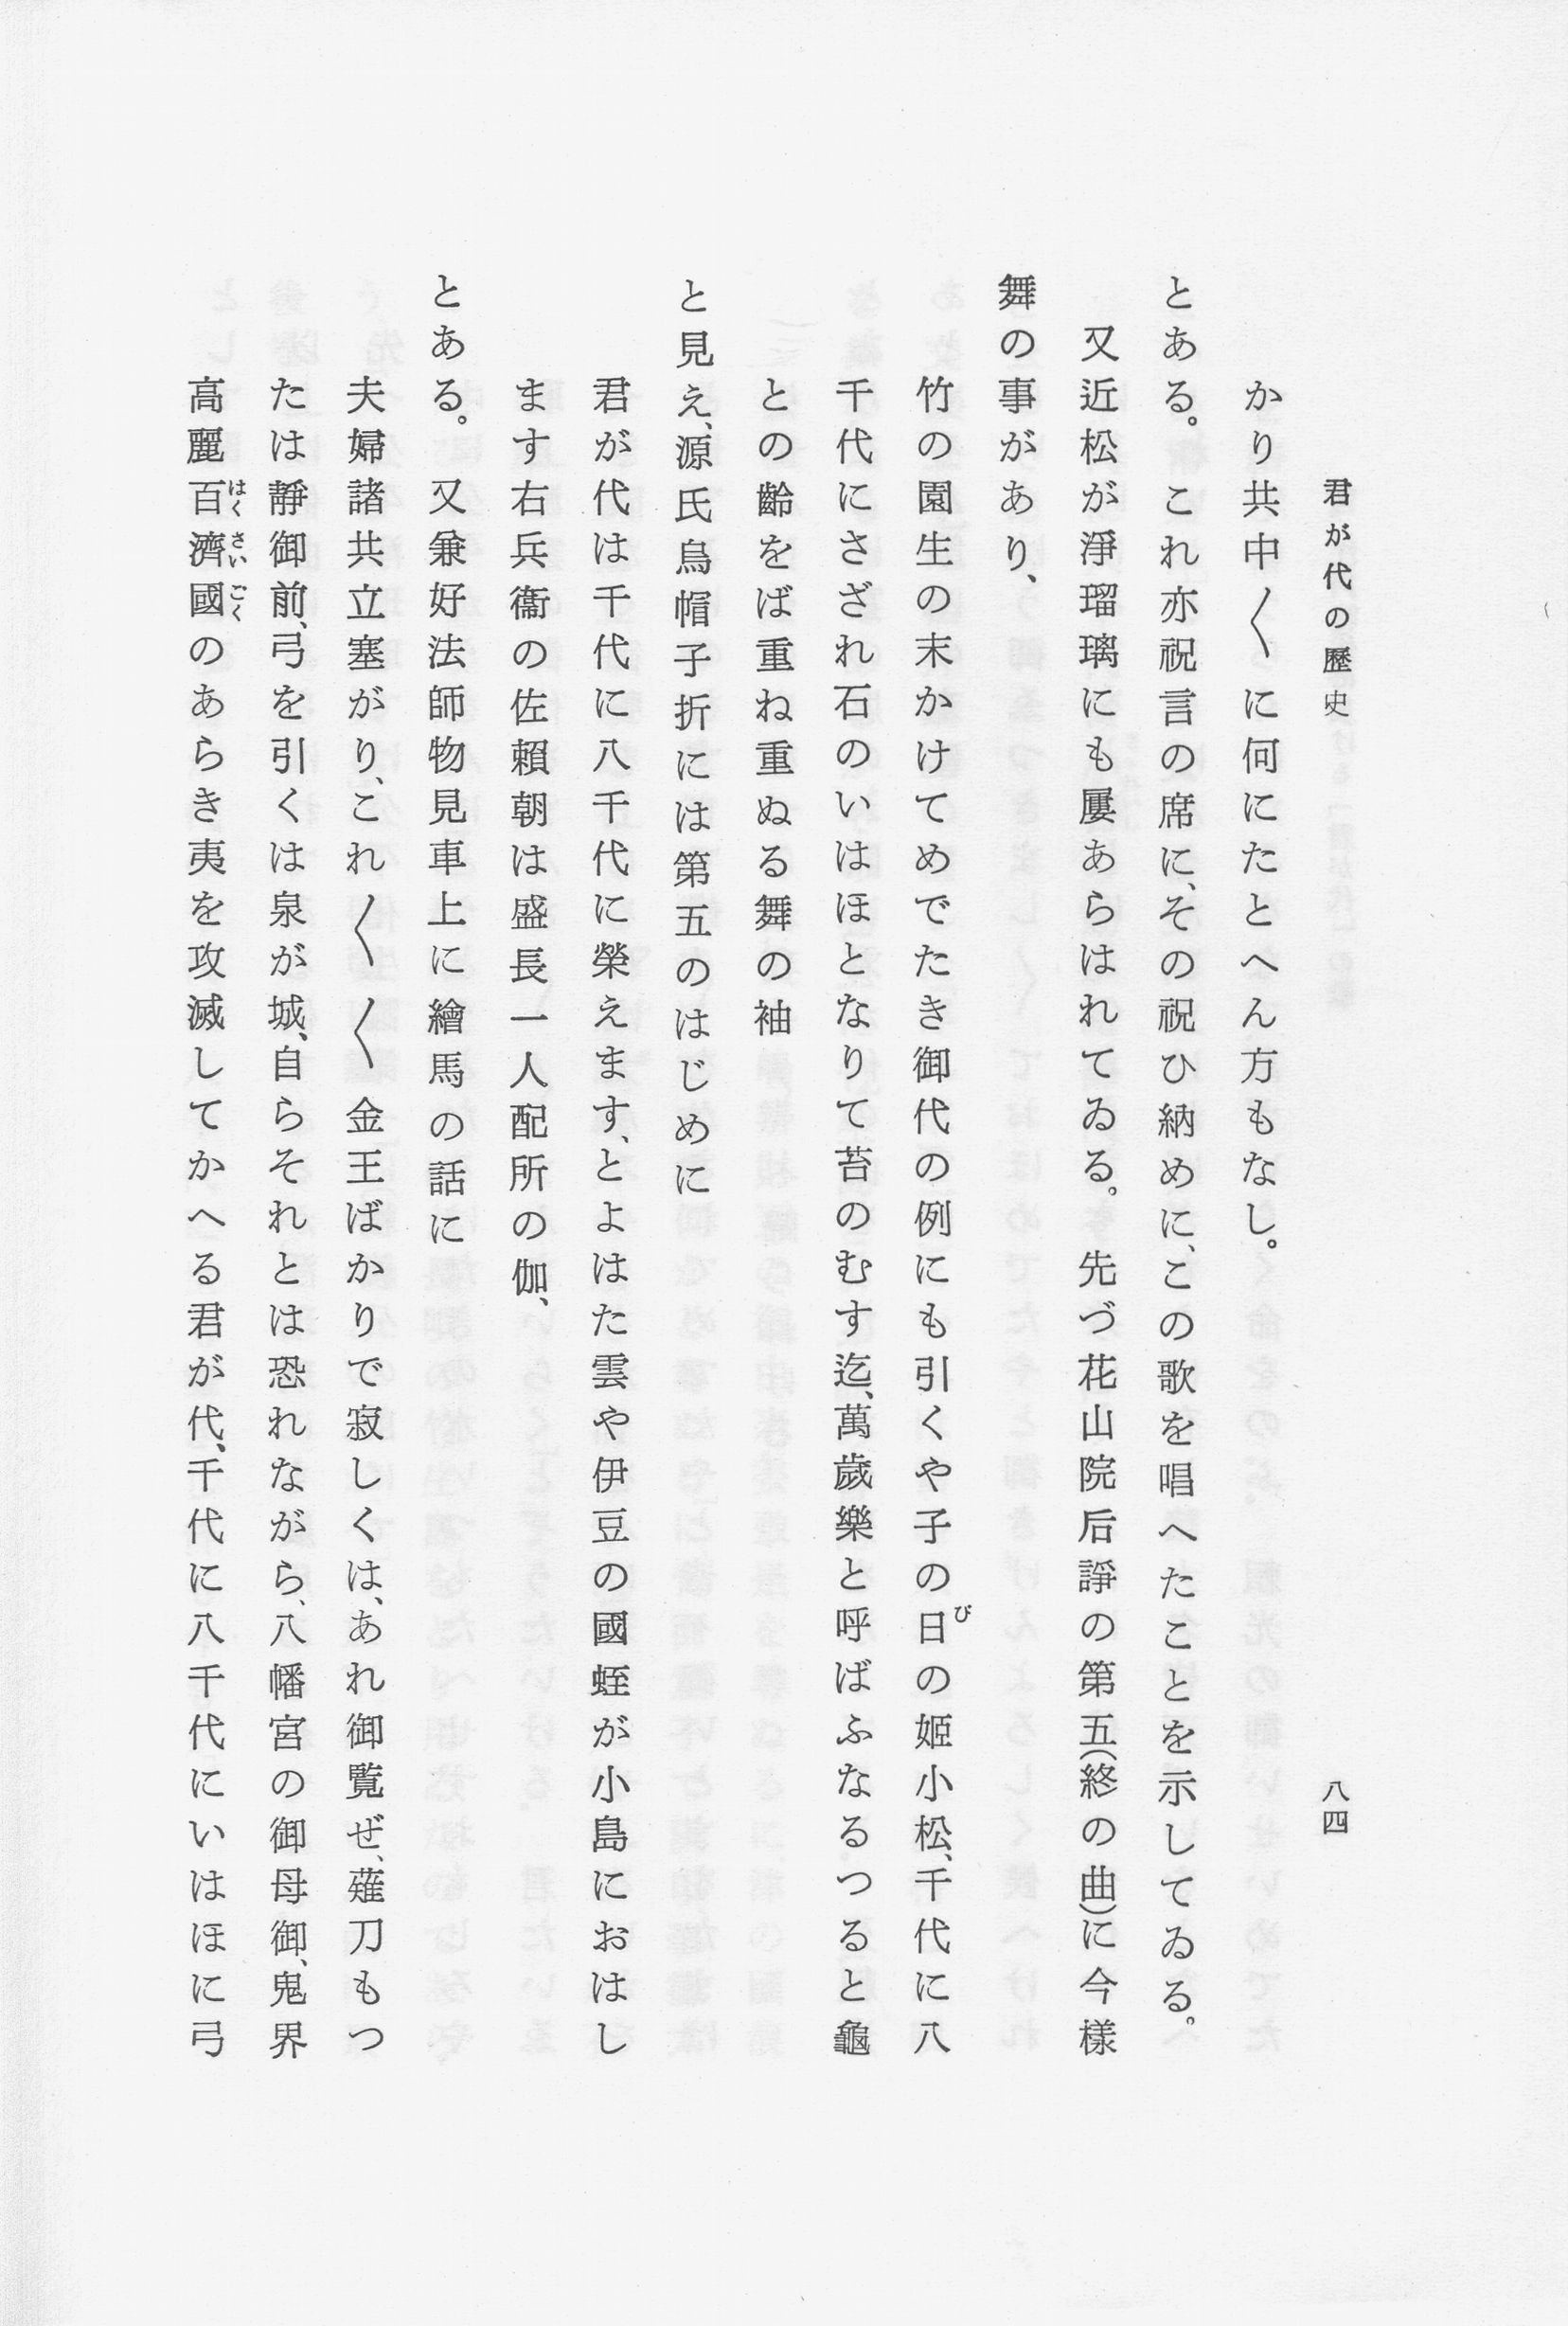 君が代の歷史
八四
かり共中〱に何にたとへん方もなし。
とある。これ亦祝言の席に、その祝ひ納めに、この歌を唱へたことを示してゐる。
又近松が淨瑠璃にも屢あらはれてゐる。先づ花山院后諍の第五(終の曲)に今樣
舞の事があり、
竹の園生の末かけてめでたき御代の例にも引くや子の日の姬小松、千代に八
び
千代にさざれ石のいはほとなりて苔のむす迄、萬歲樂と呼ばふなるつると龜
との齡をば重ね重ぬる舞の袖
と見え、源氏烏帽子折には第五のはじめに
君が代は千代に八千代に榮えます、とよはた雲や伊豆の國蛭が小島におはし
ます右兵衞の佐賴朝は盛長一人配所の伽、
とある。又兼好法師物見車上に繪馬の話に
夫婦諸共立塞がり、これ〱〱金王ばかりで寂しくは、あれ御覧ぜ、薙刀もつ
たは靜御前、弓を引くは泉が城、自らそれとは恐れながら、八幡宮の御母御、鬼界
高麗百濟國のあらき夷を攻滅してかへる君が代、千代に八千代にいはほに弓
はくさいこく